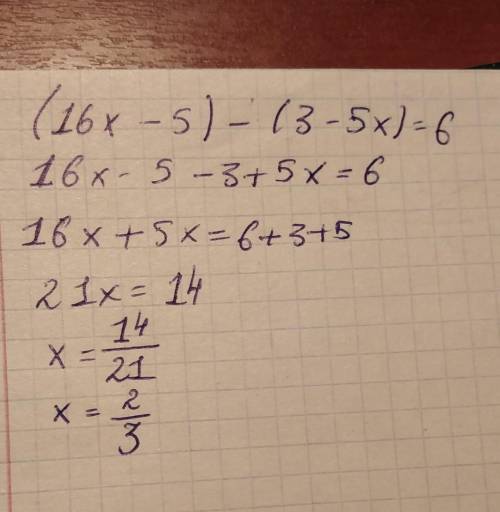 (16x - 5) - (3 - 5x) = 6
16x - 5 - 3 + 5x = 6
16x + 5x = 6 + 3 + 5
21x = 14
x = 14/21
x = 2/3